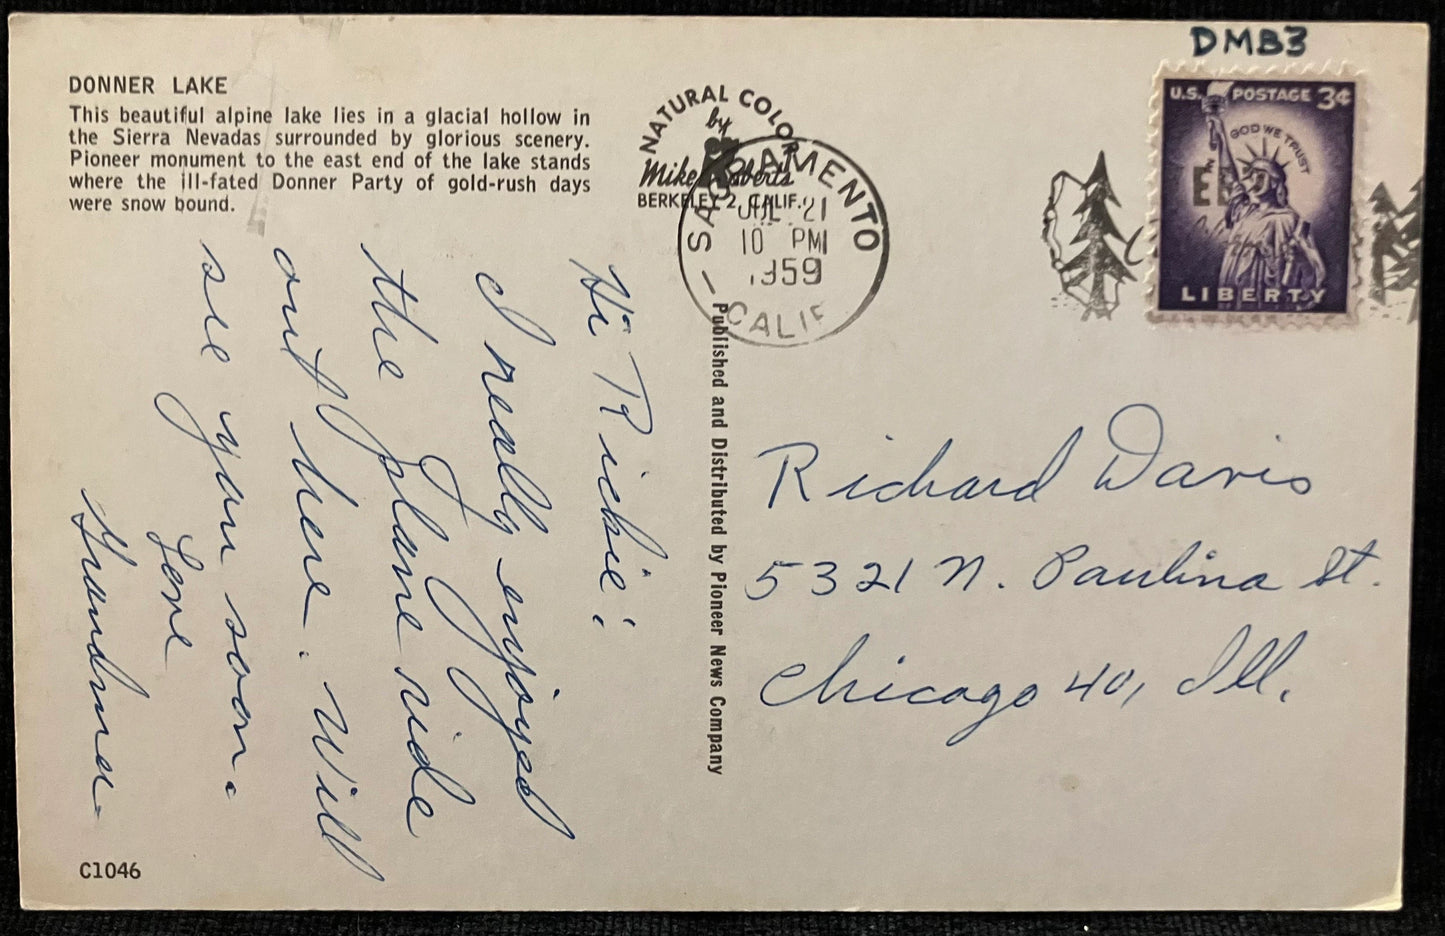 DMB3
DONNER LAKE
This beautiful alpine lake lies in a glacial hollow in
the Sierra Nevadas surrounded by glorious scenery.
Pioneer monument to the east end of the lake stands
where the ill-fated Donner Party of gold-rush days
were snow bound.
NATURAL COLOR
by
Mike Roberts
BERKELEY 2, CALIF.
SACRAMENTO
JUL 21
10 PM
1959
CALIF
U.S. POSTAGE 3¢
IN GOD WE TRUST
LIBERTY
Hi Rickie:
I really enjoyed
the plane ride
out here. Will
see you soon.
Love
Grandma-
Published and Distributed by Pioneer News Company
Richard Davis
5321 N. Paulina St.
Chicago 40, Ill.
C1046